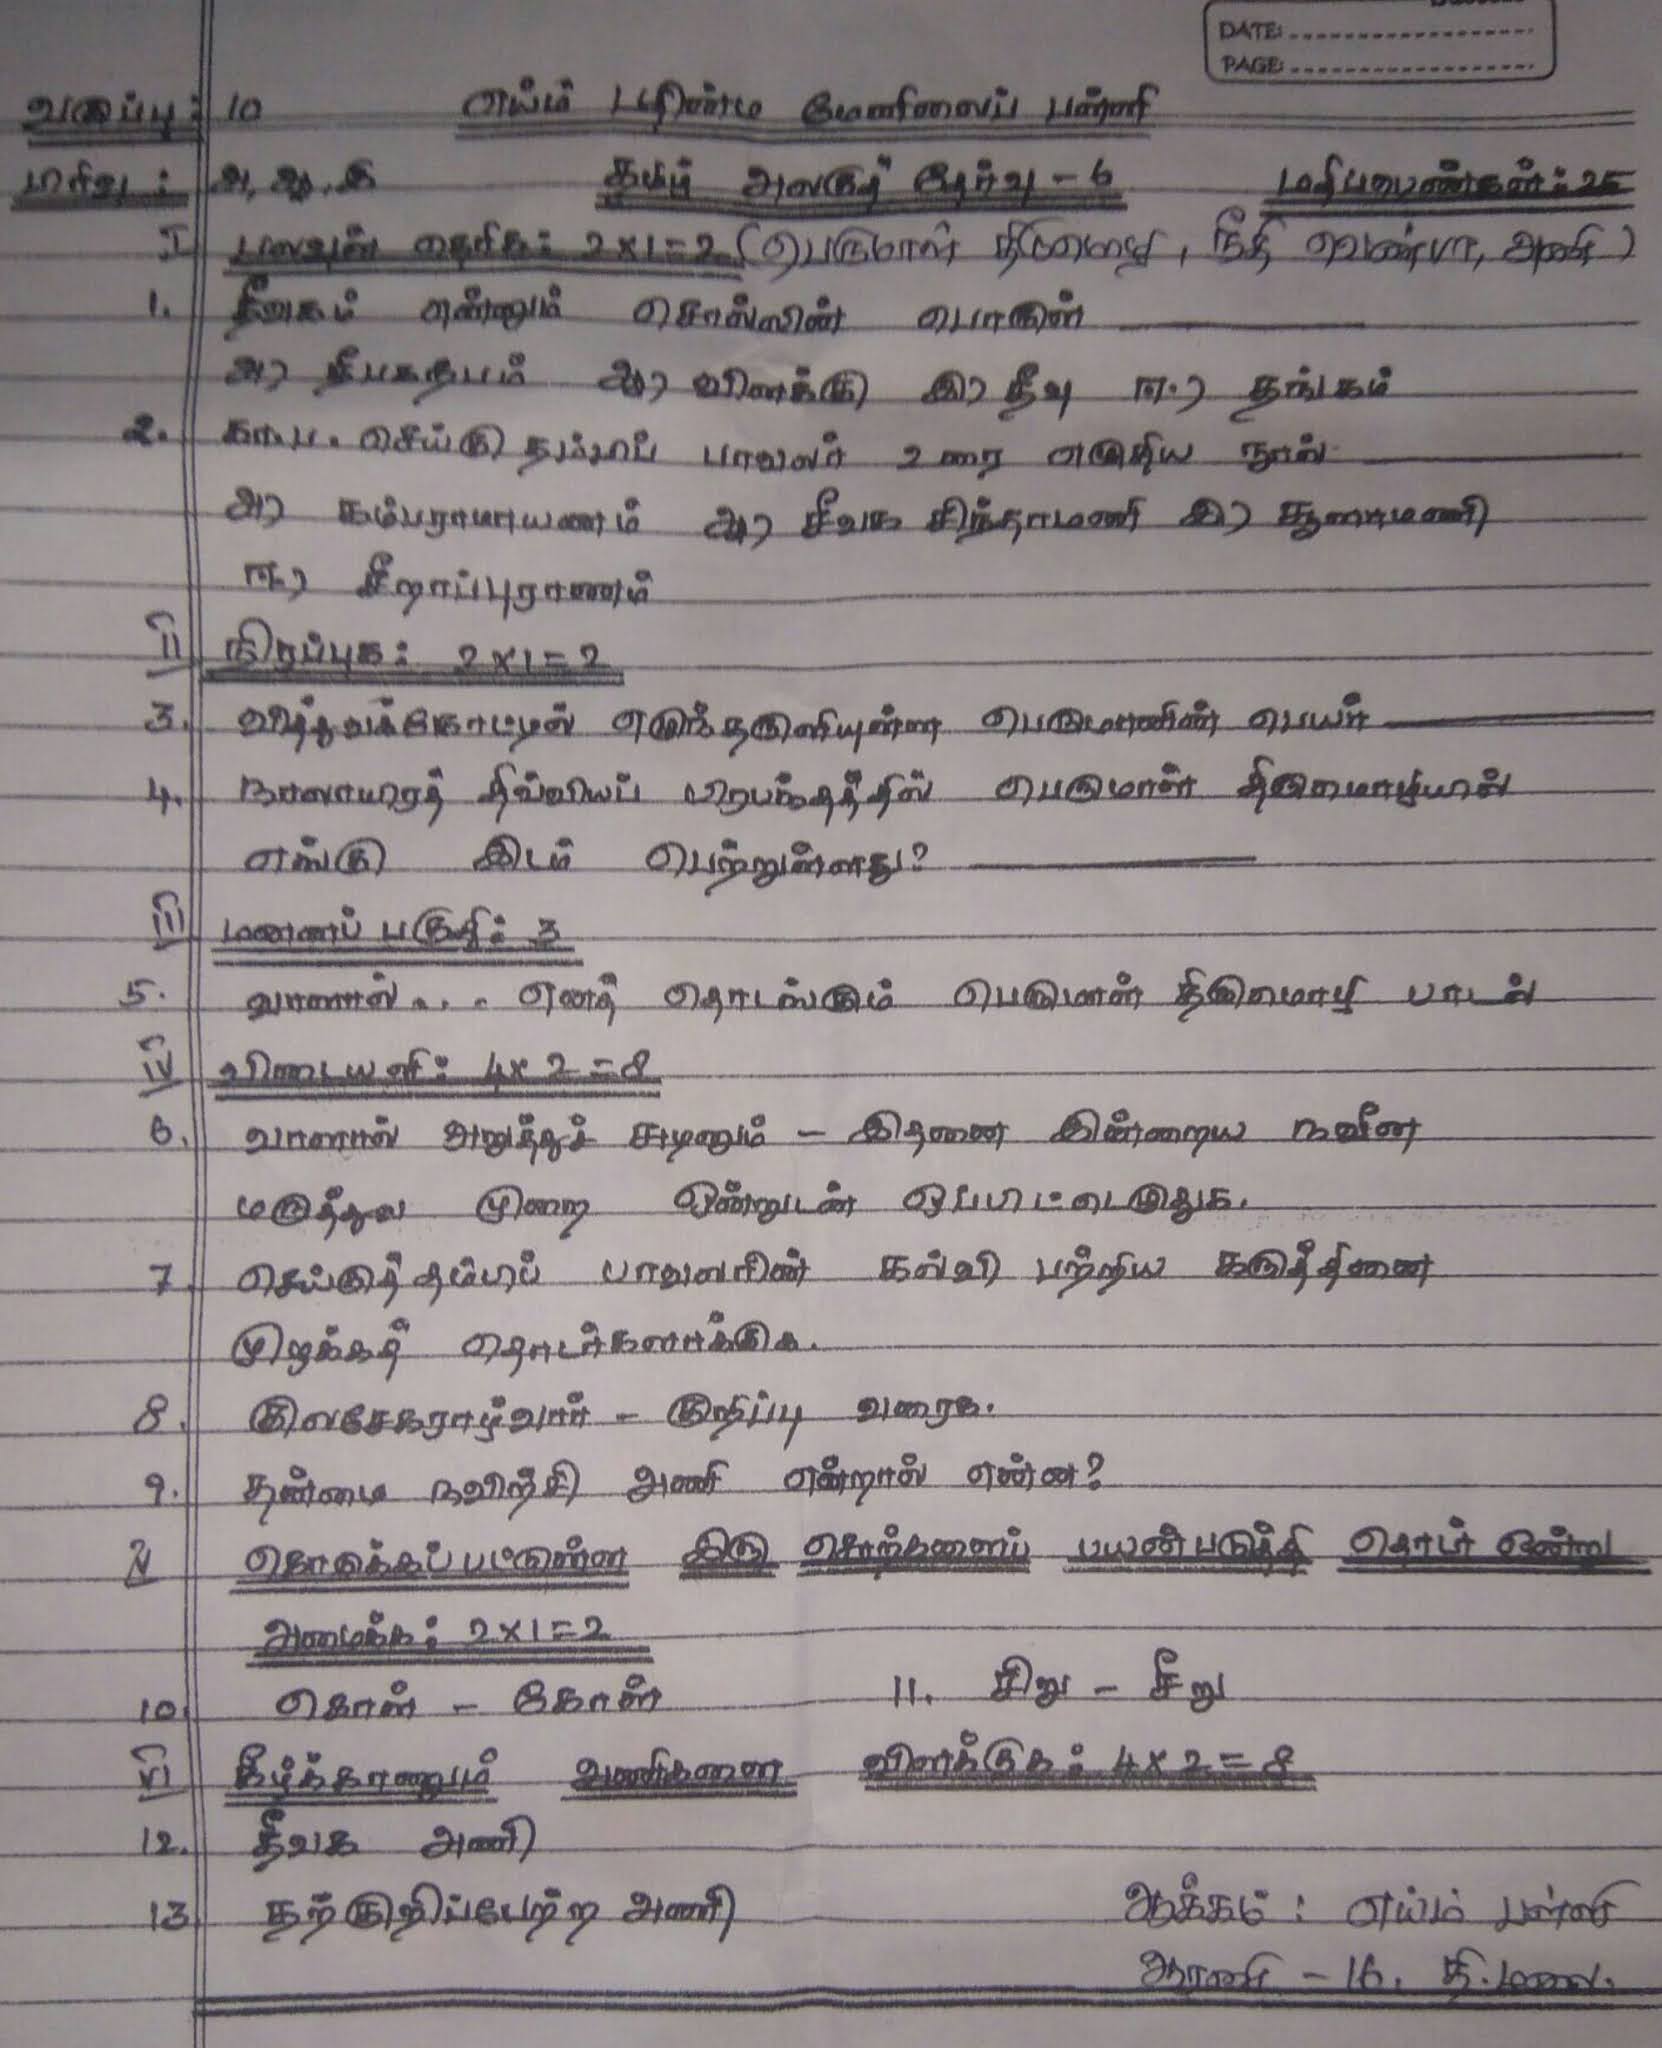 DATE:
PAGE:
வகுப்பு : 10 எய்ம் பதின்ம மேனிலைப் பள்ளி
பிரிவு : அ, ஆ, இ தமிழ் அலகுத் தேர்வு - 6 மதிப்பெண்கள் : 25
I பலவுள் தெரிக : 2 x 1 = 2 (பெருமாள் திருமொழி, நீதி வெண்பா, அணி)
1. தீவகம் என்னும் சொல்லின் பொருள்
அ) தீபகற்பம் ஆ) விளக்கு இ) தீவு ஈ) தங்கம்
2. கா.ப. செய்கு தம்பிப் பாவலர் உரை எழுதிய நூல்
அ) கம்பராமாயணம் ஆ) சீவக சிந்தாமணி இ) சூளாமணி
ஈ) சீறாப்புராணம்
II நிரப்புக : 2 x 1 = 2
3. வித்துவக்கோட்டில் எழுந்தருளியுள்ள பெருமாளின் பெயர்
4. நாலாயிரத் திவ்வியப் பிரபந்தத்தில் பெருமாள் திருமொழியில்
எங்கு இடம் பெற்றுள்ளது?
III மனனப் பகுதி : 3
5. வாளால் . . . எனத் தொடங்கும் பெருமாள் திருமொழி பாடல்
IV விடையளி : 4 x 2 = 8
6. வாளால் அறுத்துச் சுடினும் - இதனை இன்றைய நவீன
மருத்துவ முறை ஒன்றுடன் ஒப்பிட்டெழுதுக.
7. செய்குத் தம்பிப் பாவலரின் கல்வி பற்றிய கருத்தினை
முழக்கத் தொடர்களாக்குக.
8. குலசேகராழ்வார் - குறிப்பு வரைக.
9. தன்மை நவிற்சி அணி என்றால் என்ன?
V கொடுக்கப்பட்டுள்ள இரு சொற்களைப் பயன்படுத்தி தொடர் ஒன்று
அமைக்க : 2 x 1 = 2
10. கொள் - கோள் 11. சிறு - சீறு
VI கீழ்க்காணும் அணிகளை விளக்குக : 4 x 2 = 8
12. தீவக அணி
13 தற்குறிப்பேற்ற அணி ஆக்கம் : எய்ம் பள்ளி
ஆரணி - 16. தி.மலை.